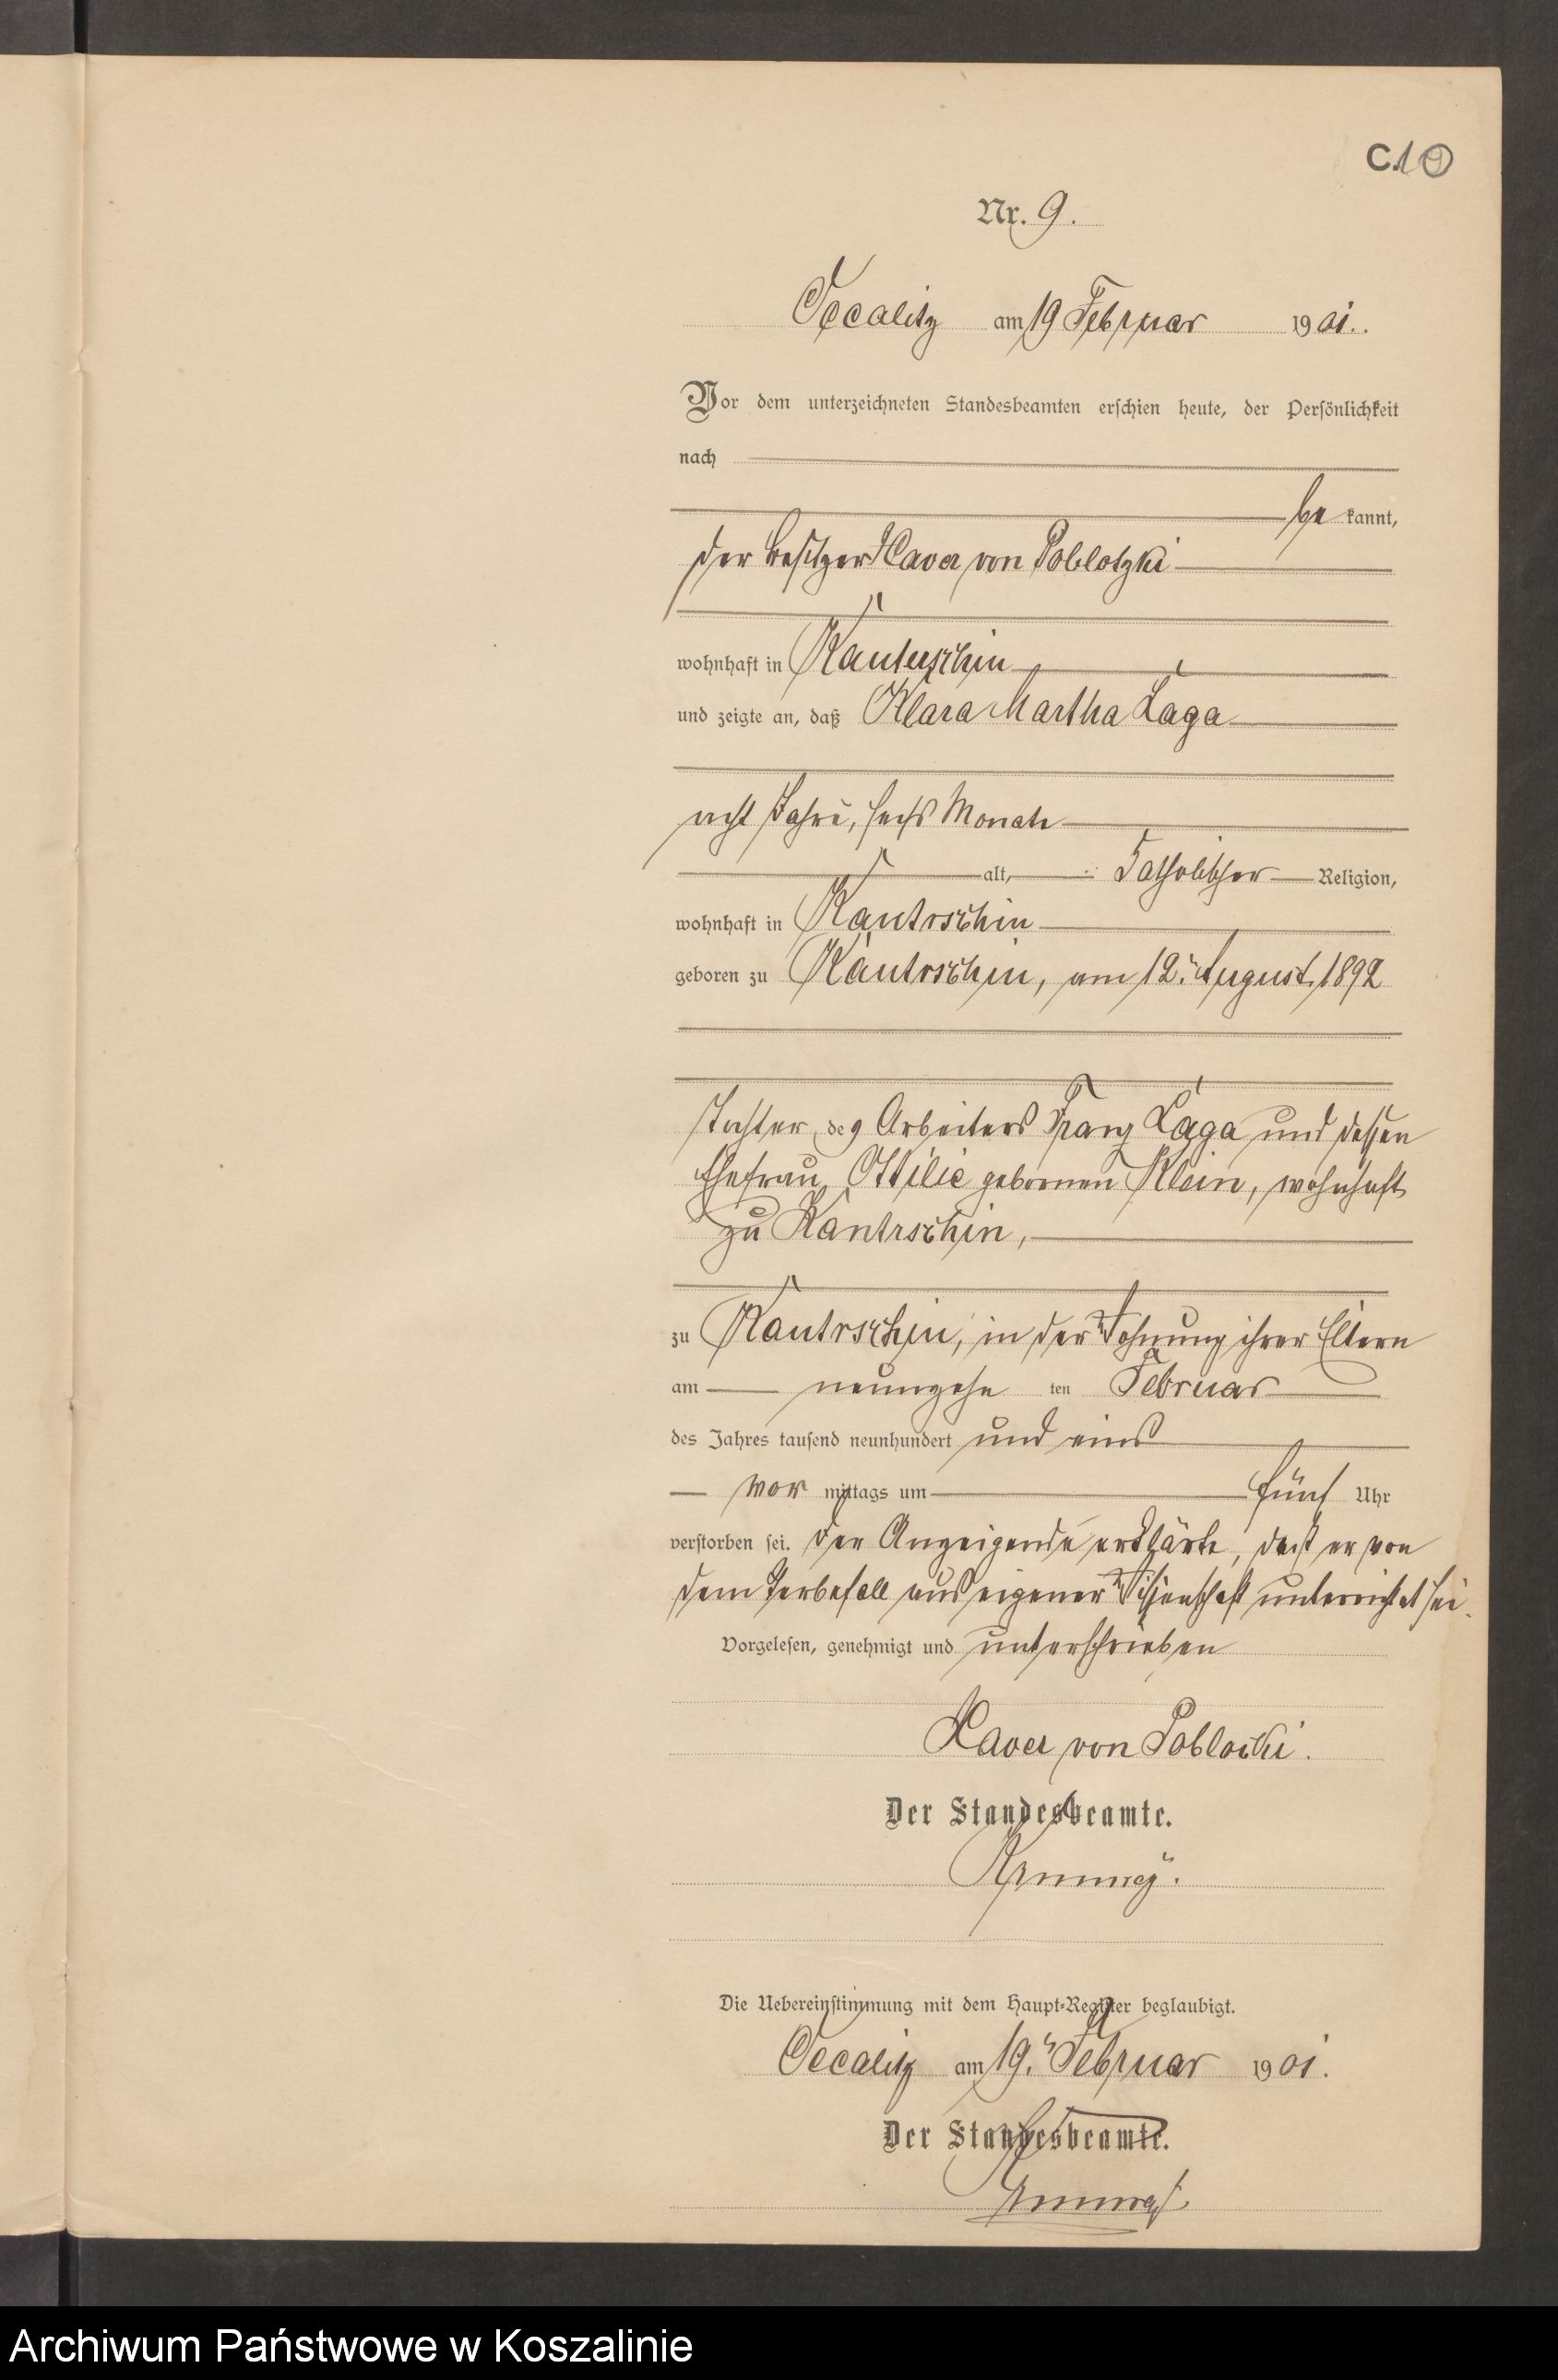 C.10
Nr. 9.
Occalitz am 19 Februar 1901.
Vor dem unterzeichneten Standesbeamten erschien heute, der Persönlichkeit
nach
be kannt,
der Besitzer Xaver von Poblotzki
wohnhaft in Kantrschin
und zeigte an, daß Klara Martha Laga
acht Jahre, sechs Monate
alt, katholischer Religion,
wohnhaft in Kantrschin
geboren zu Kantrschin, am 12. August 1892
Tochter des Arbeiters Franz Laga und dessen
Ehefrau Ottilie gebornen Klein, wohnhaft
zu Kantrschin,
zu Kantrschin, in der Wohnung ihrer Eltern
am neunzehn ten Februar
des Jahres tausend neunhundert und eins
vor mittags um fünf Uhr
verstorben sei. Der Anzeigende erklärte, daß er von
dem Sterbefall aus eigener Wissenschaft unterrichtet sei.
Vorgelesen, genehmigt und unterschrieben
Xaver von Poblocki.
Der Standesbeamte.
Die Uebereinstimmung mit dem Haupt-Register beglaubigt.
Occalitz am 19. Februar 1901.
Der Standesbeamte.
Archiwum Państwowe w Koszalinie